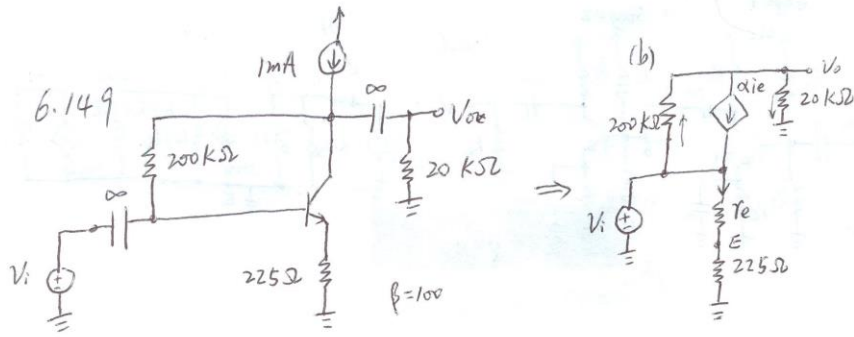 6.149
1mA
∞
Vox
200KΩ
20 KΩ
∞
Vi
225Ω
β=100
⇒
(b)
Vo
αie
200KΩ
20KΩ
Vi
re
E
225Ω